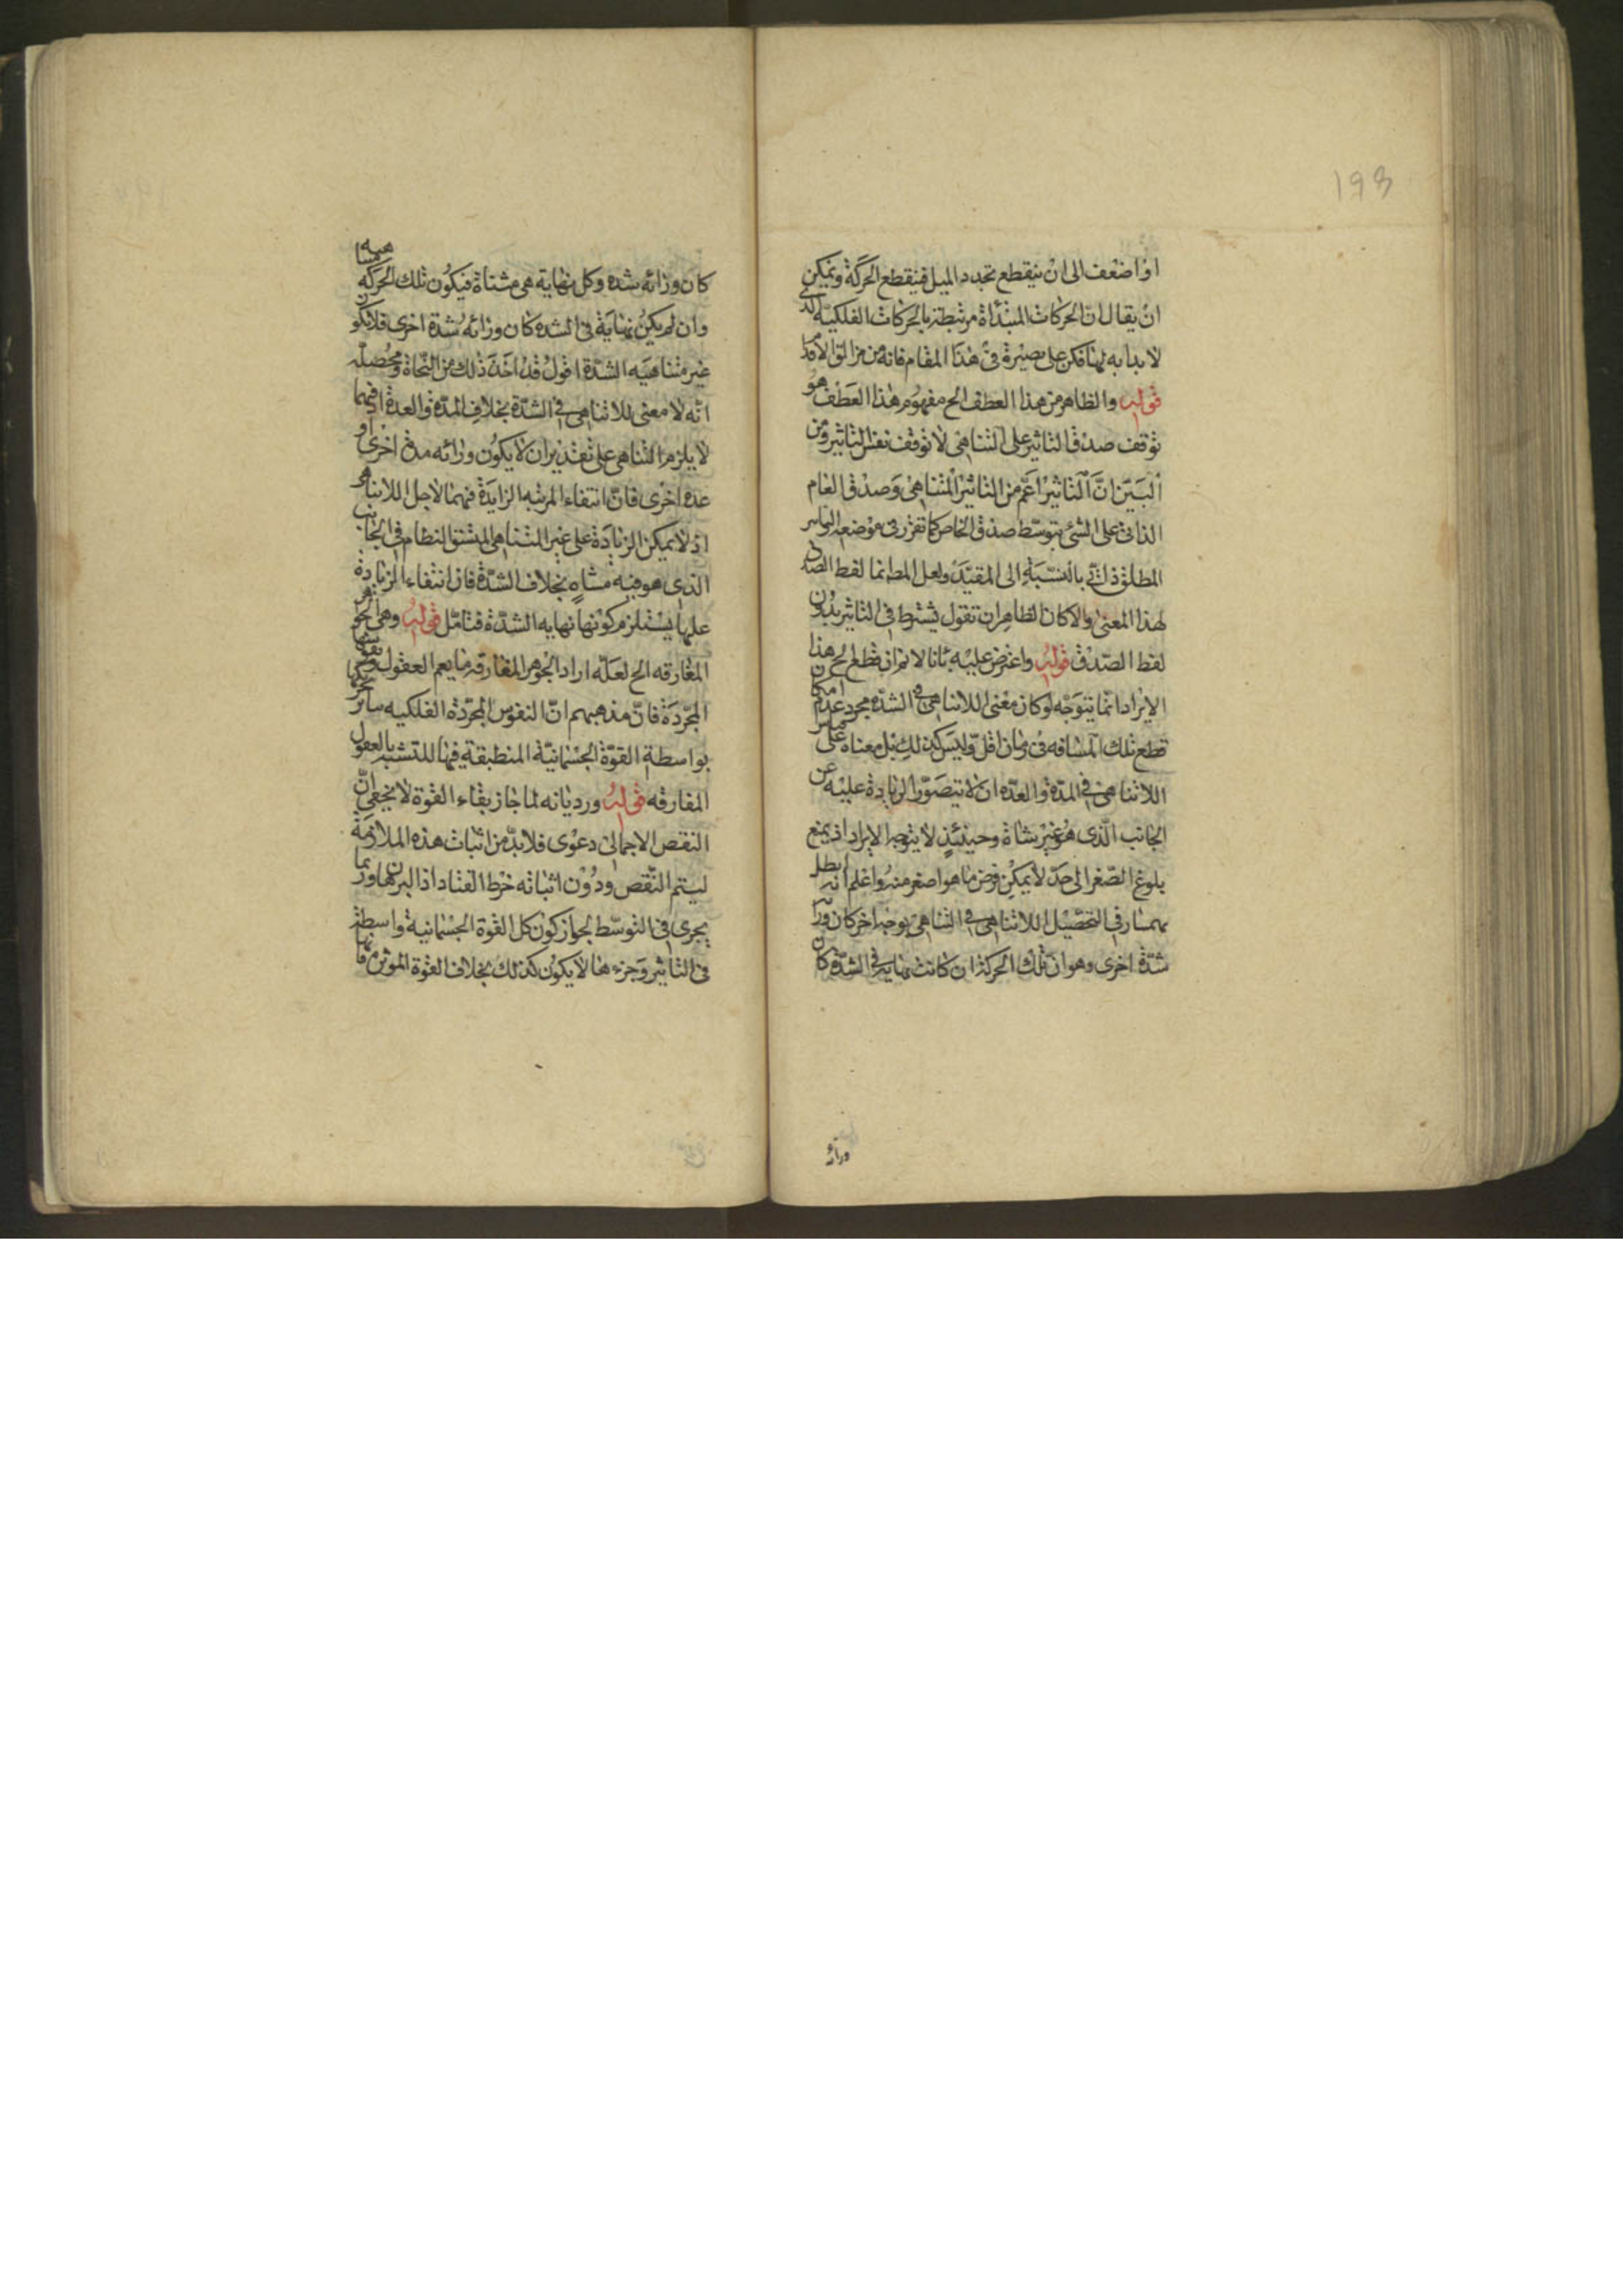 193
او اضعف الى ان ينقطع تجدد الميل فينقطع الحركة ويمكن
ان يقال ان الحركات المبتدأة مرتبطة بالحركات الفلكية
لا بداية لها فكن على بصيرة فى هذا المقام فانه من مزالق الاقدام
قوله والظاهر من هذا العطف الخ مفهوم هذا العطف هو
توقف صدق التاثير على التناهى لا توقف نفس التاثير ومن
البيّن انّ التاثير اعم من التاثير المتناهى وصدق العام
الذاتى على الشئ بتوسّط صدق الخاص كما تقرر فى موضعه
المطلق ذاتى بالنسبة الى المقيّد ولعل المط انما لفظ الصدق
لهذا المعنى والا كان الظاهر ان تقول يشترط فى التاثير بدون
لفظ الصّدق قوله واعترض عليه بانا لانم ان قطع الخ هذا
الايراد انما يتوجه لو كان معنى اللاتناهى فى الشدة مجرد عدم امكان
قطع تلك المسافة فى زمان اقلّ وليس كذلك بل معناه على قياس
اللاتناهى فى المدّة والعدّة ان لا تيصوّر الزيادة عليه من
الجانب الّذى هو غير متناه وحينئذٍ لا يتوجه الايراد اذ يمنع
بلوغ الصّغر الى حدّ لا يمكن فرض ما هو اصغر منه واعلم انه ابطل
بهمنيار فى التحصيل اللاتناهى فى التناهى بوجه اخر كان وراء
شدّة اخرى وهو ان تلك الحركة ان كانت نهاية فى الشدّة كان
ورائه
كان ورائه شدة وكل نهاية هى متناة فيكون تلك الحركة متناهية
وان لم يكن نهاية فى الشدة كان ورائه شدة اخرى فلا يكون
غير متناهية الشدّة اقول قد اخذ ذلك من النجاة ومحصله
انّه لا معنى للاتناهى فى الشدّة بخلاف المدة والعدة اذ فيهما
لا يلزم التناهى على تقدير ان لا يكون ورائه مدة اخرى او
عدة اخرى فانّ انتفاء المرتبة الزايدة فيهما لاجل اللاتناهى
اذ لا يمكن الزيادة على غير المتناهى المتسق النظام فى الجانب
الذى هو فيه متناهٍ بخلاف الشدّة فان انتفاء الزيادة
عليها يستلزم كونها نهاية الشدّة فتامّل قوله وهى الجواهر
المفارقه الخ لعلّه اراد الجوهر المفارقه ما يعم العقول ونفوسها
المجرّدة فانّ مذهبهم انّ النفوس المجرّدة الفلكيه
بواسطة القوّة الجسمانيّة المنطبقة فيها للتشبه بالعقول
المفارقه قوله ورد بانه لما جاز بقاء القوة لا يخفى انّ
النقص الاجمالى دعوى فلا بدّ من اثبات هذه الملازمة
ليتم النّقص ودون اثباته خرط القتاد اذ البرهان ربما
يجرى فى التوسّط لجواز كون كل القوة الجسمانية واسطة
فى التاثير وجزءها لا يكون كذلك بخلاف القوة الموثرة